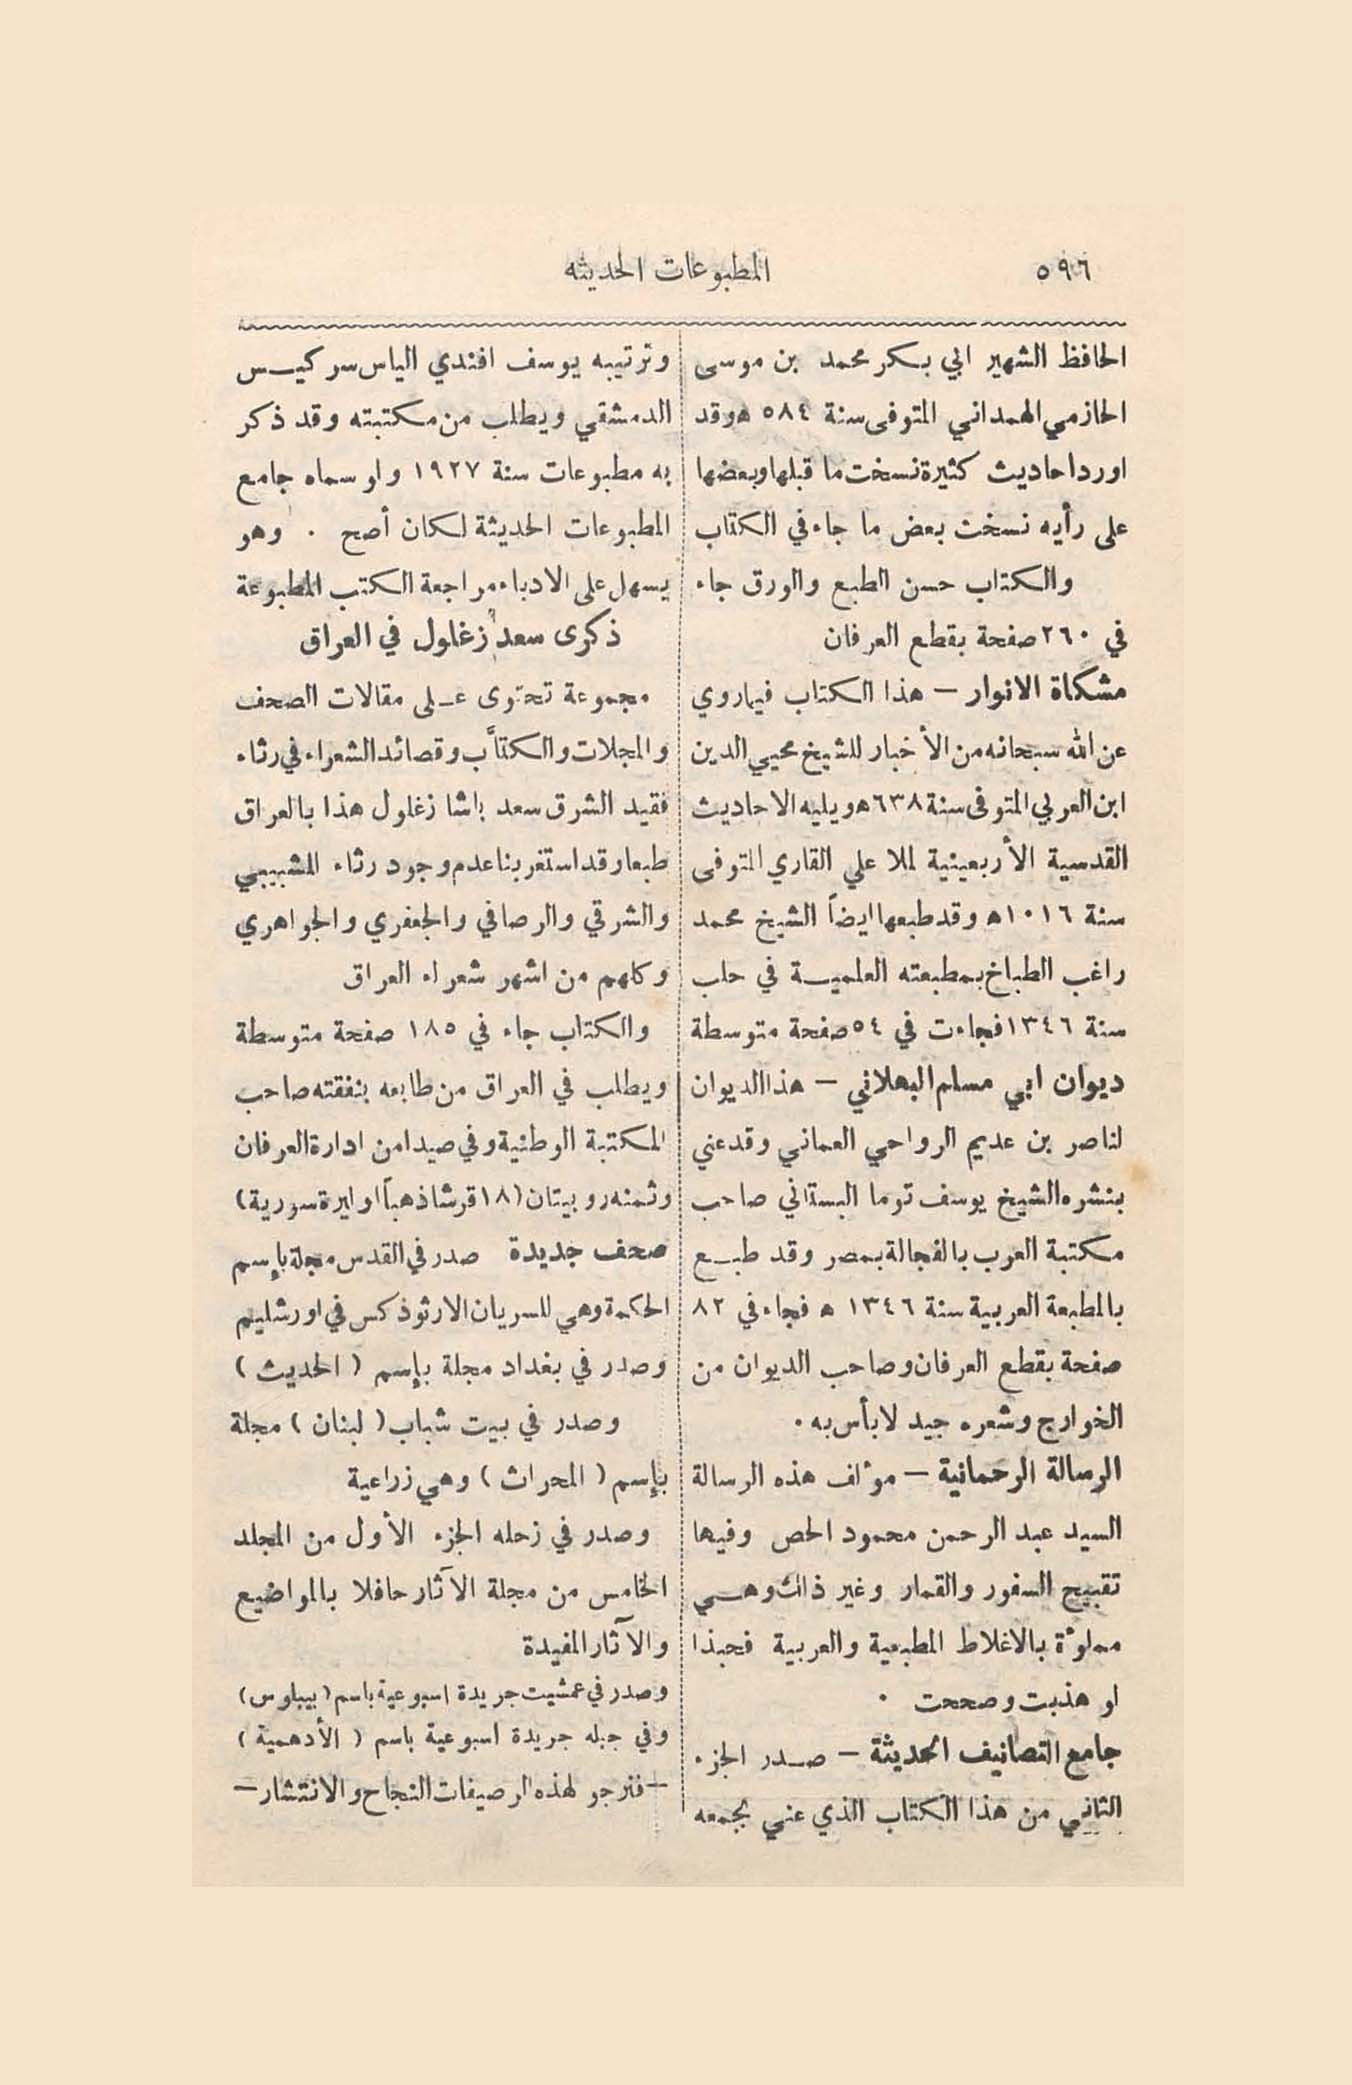 ٥٩٦
المطبوعات الحديثه
الحافظ الشهير ابي بكر محمد بن موسى
الحازمي الهمداني المتوفى سنة ٥٨٤ ه وقد
اورد احاديث كثيرة نسخت ما قبلها وبعضها
على رأيه نسخت بعض ما جاء في الكتاب
والكتاب حسن الطبع والورق جاء
في ٢٦٠ صفحة بقطع العرفان
مشكاة الانوار – هذا الكتاب فيما روي
عن الله سبحانه من الأخبار للشيخ محيي الدين
ابن العربي المتوفى سنة ٦٣٨ ه ويليه الاحاديث
القدسية الأربعينية لملا علي القاري المتوفى
سنة ١٠١٦ ه وقد طبعها ايضاً الشيخ محمد
راغب الطباخ بمطبعته العلمية في حلب
سنة ١٣٤٦ فجاءت في ٥٤ صفحة متوسطة
ديوان ابي مسلم البهلاني – هذا الديوان
لناصر بن عديم الرواحي العماني وقد عني
بنشره الشيخ يوسف توما البستاني صاحب
مكتبة العرب بالفجالة بمصر وقد طبع
بالمطبعة العربية سنة ١٣٤٦ ه فجاء في ٨٢
صفحة بقطع العرفان وصاحب الديوان من
الخوارج وشعره جيد لا بأس به .
الرسالة الرحمانية – مؤلف هذه الرسالة
السيد عبد الرحمن محمود الحص وفيها
تقبيح السفور والقمار وغير ذلك وهي
مملوءة بالاغلاط المطبعية والعربية فحبذا
لو هذبت وصححت .
جامع التصانيف الحديثة – صدر الجزء
الثاني من هذا الكتاب الذي عني بجمعه
وترتيبه يوسف افندي الياس سركيس
الدمشقي ويطلب من مكتبته وقد ذكر
به مطبوعات سنة ١٩٢٧ ولو سماه جامع
المطبوعات الحديثة لكان أصح . وهو
يسهل على الادباء مراجعة الكتب المطبوعة
ذكرى سعد زغلول في العراق
مجموعة تحتوى على مقالات الصحف
والمجلات والكتّاب وقصائد الشعراء في رثاء
فقيد الشرق سعد باشا زغلول هذا بالعراق
طبعا وقد استغربنا عدم وجود رثاء للشبيبي
والشرقي والرصافي والجعفري والجواهري
وكلهم من اشهر شعراء العراق
والكتاب جاء في ١٨٥ صفحة متوسطة
ويطلب في العراق من طابعه بنفقته صاحب
المكتبة الوطنية وفي صيدا من ادارة العرفان
وثمنه روبيتان (١٨ قرشا ذهباً او ليرة سورية)
صحف جديدة صدر في القدس مجلة بإسم
الحكمة وهي للسريان الارثوذكس في اورشليم
وصدر في بغداد مجلة بإسم ( الحديث )
وصدر في بيت شباب ( لبنان ) مجلة
بإسم ( المحراث ) وهي زراعية
وصدر في زحله الجزء الأول من المجلد
الخامس من مجلة الآثار حافلا بالمواضيع
والآثار المفيدة
وصدر في عمشيت جريدة اسبوعية باسم (بيبلوس)
وفي جبله جريدة اسبوعية باسم ( الأدهمية )
– فنرجو لهذه الرصيفات النجاح والانتشار –